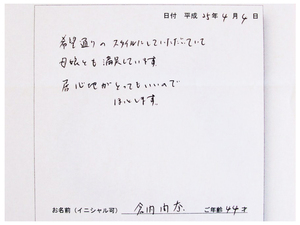 日付 平成 25年 4月 4日
希望通りの スタイルにしていただいていて
母娘とも 満足しています
居心地が とってもいいので
はいします
お名前（イニシャル可） 倉内 由奈 ご年齢 44才